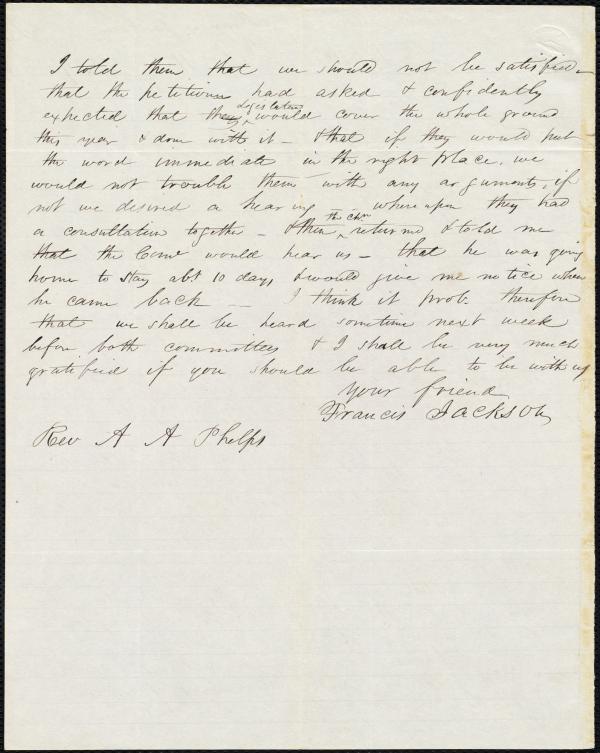 I told them that we should not be satisfied -
that the petitions had asked & confidently
expected that they Legislature would cover the whole ground
this year & done with it - & that if they would put
the word immediate in the right place, we
would not trouble them with any arguments, if
not we desired a hearing - whereupon they had
a consultation together - & then the Chn returned & told me
that the Come would hear us - that he was going
home to stay abt 10 days, & would give me notice when
he came back -- I think it prob. therefore
that we shall be heard sometime next week
before both committees & I shall be very much
gratified if you should be able to be with us
Your friend
Francis Jackson
Rev A A Phelps